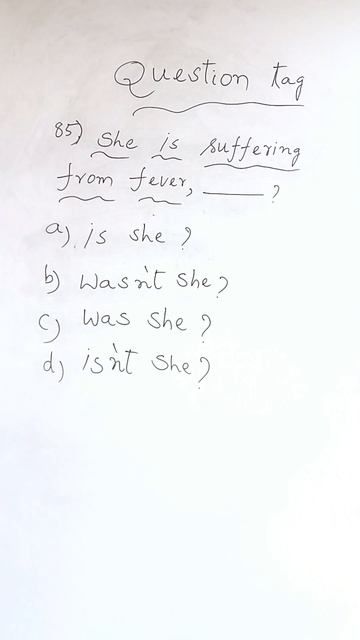 Question tag
85) She is suffering
from fever, _____ ?
a) is she ?
b) Wasn't she ?
c) Was she ?
d) isn't she ?